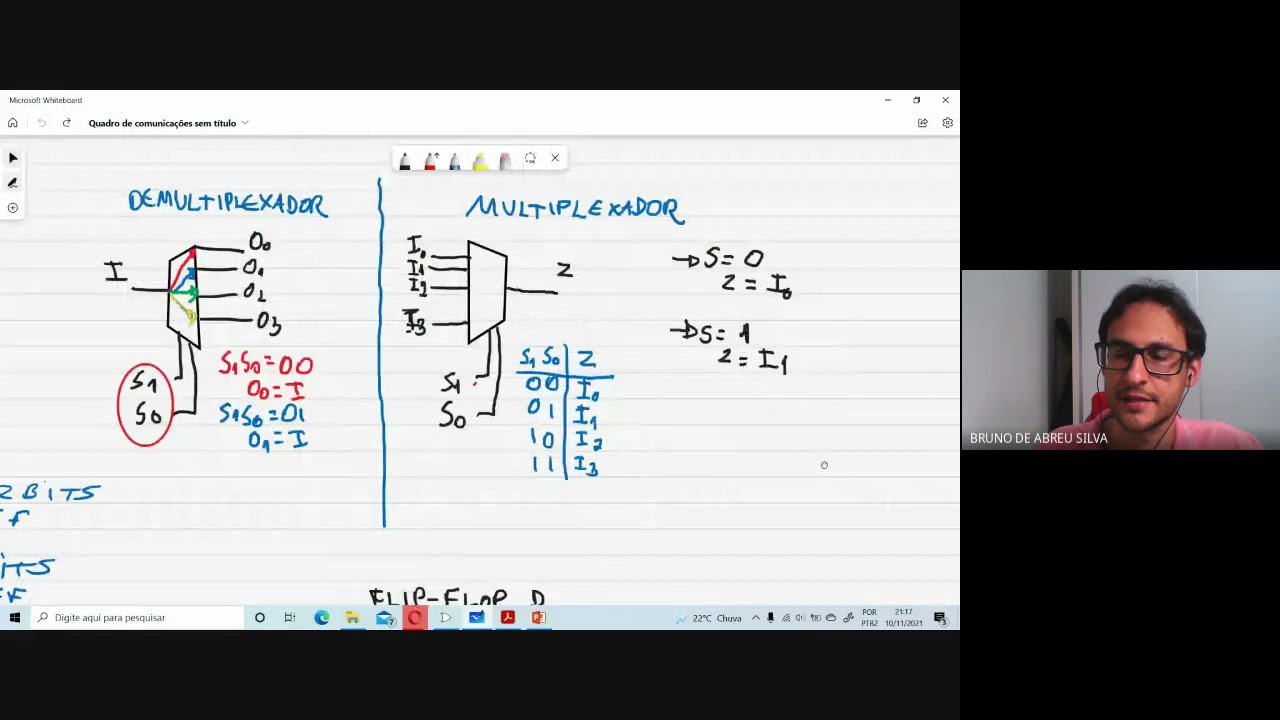 Microsoft Whiteboard
Quadro de comunicações sem título
DEMULTIPLEXADOR
I
O0
O1
O2
O3
S1
S0
S1S0=00
O0=I
S1S0=01
O1=I
MULTIPLEXADOR
I0
I1
I2
I3
Z
S1
S0
S1 S0 Z
00 I0
01 I1
10 I2
11 I3
→S=0
Z=I0
→S=1
Z=I1
2 BITS
F
BITS
FF
FLIP-FLOP D
BRUNO DE ABREU SILVA
Digite aqui para pesquisar
7
22°C Chuva
POR
PTB2
21:17
10/11/2021
3